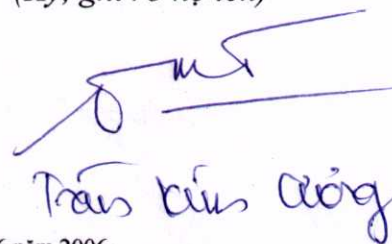 (Ký, ghi rõ họ tên)
Trần Kim Cương
năm 2006